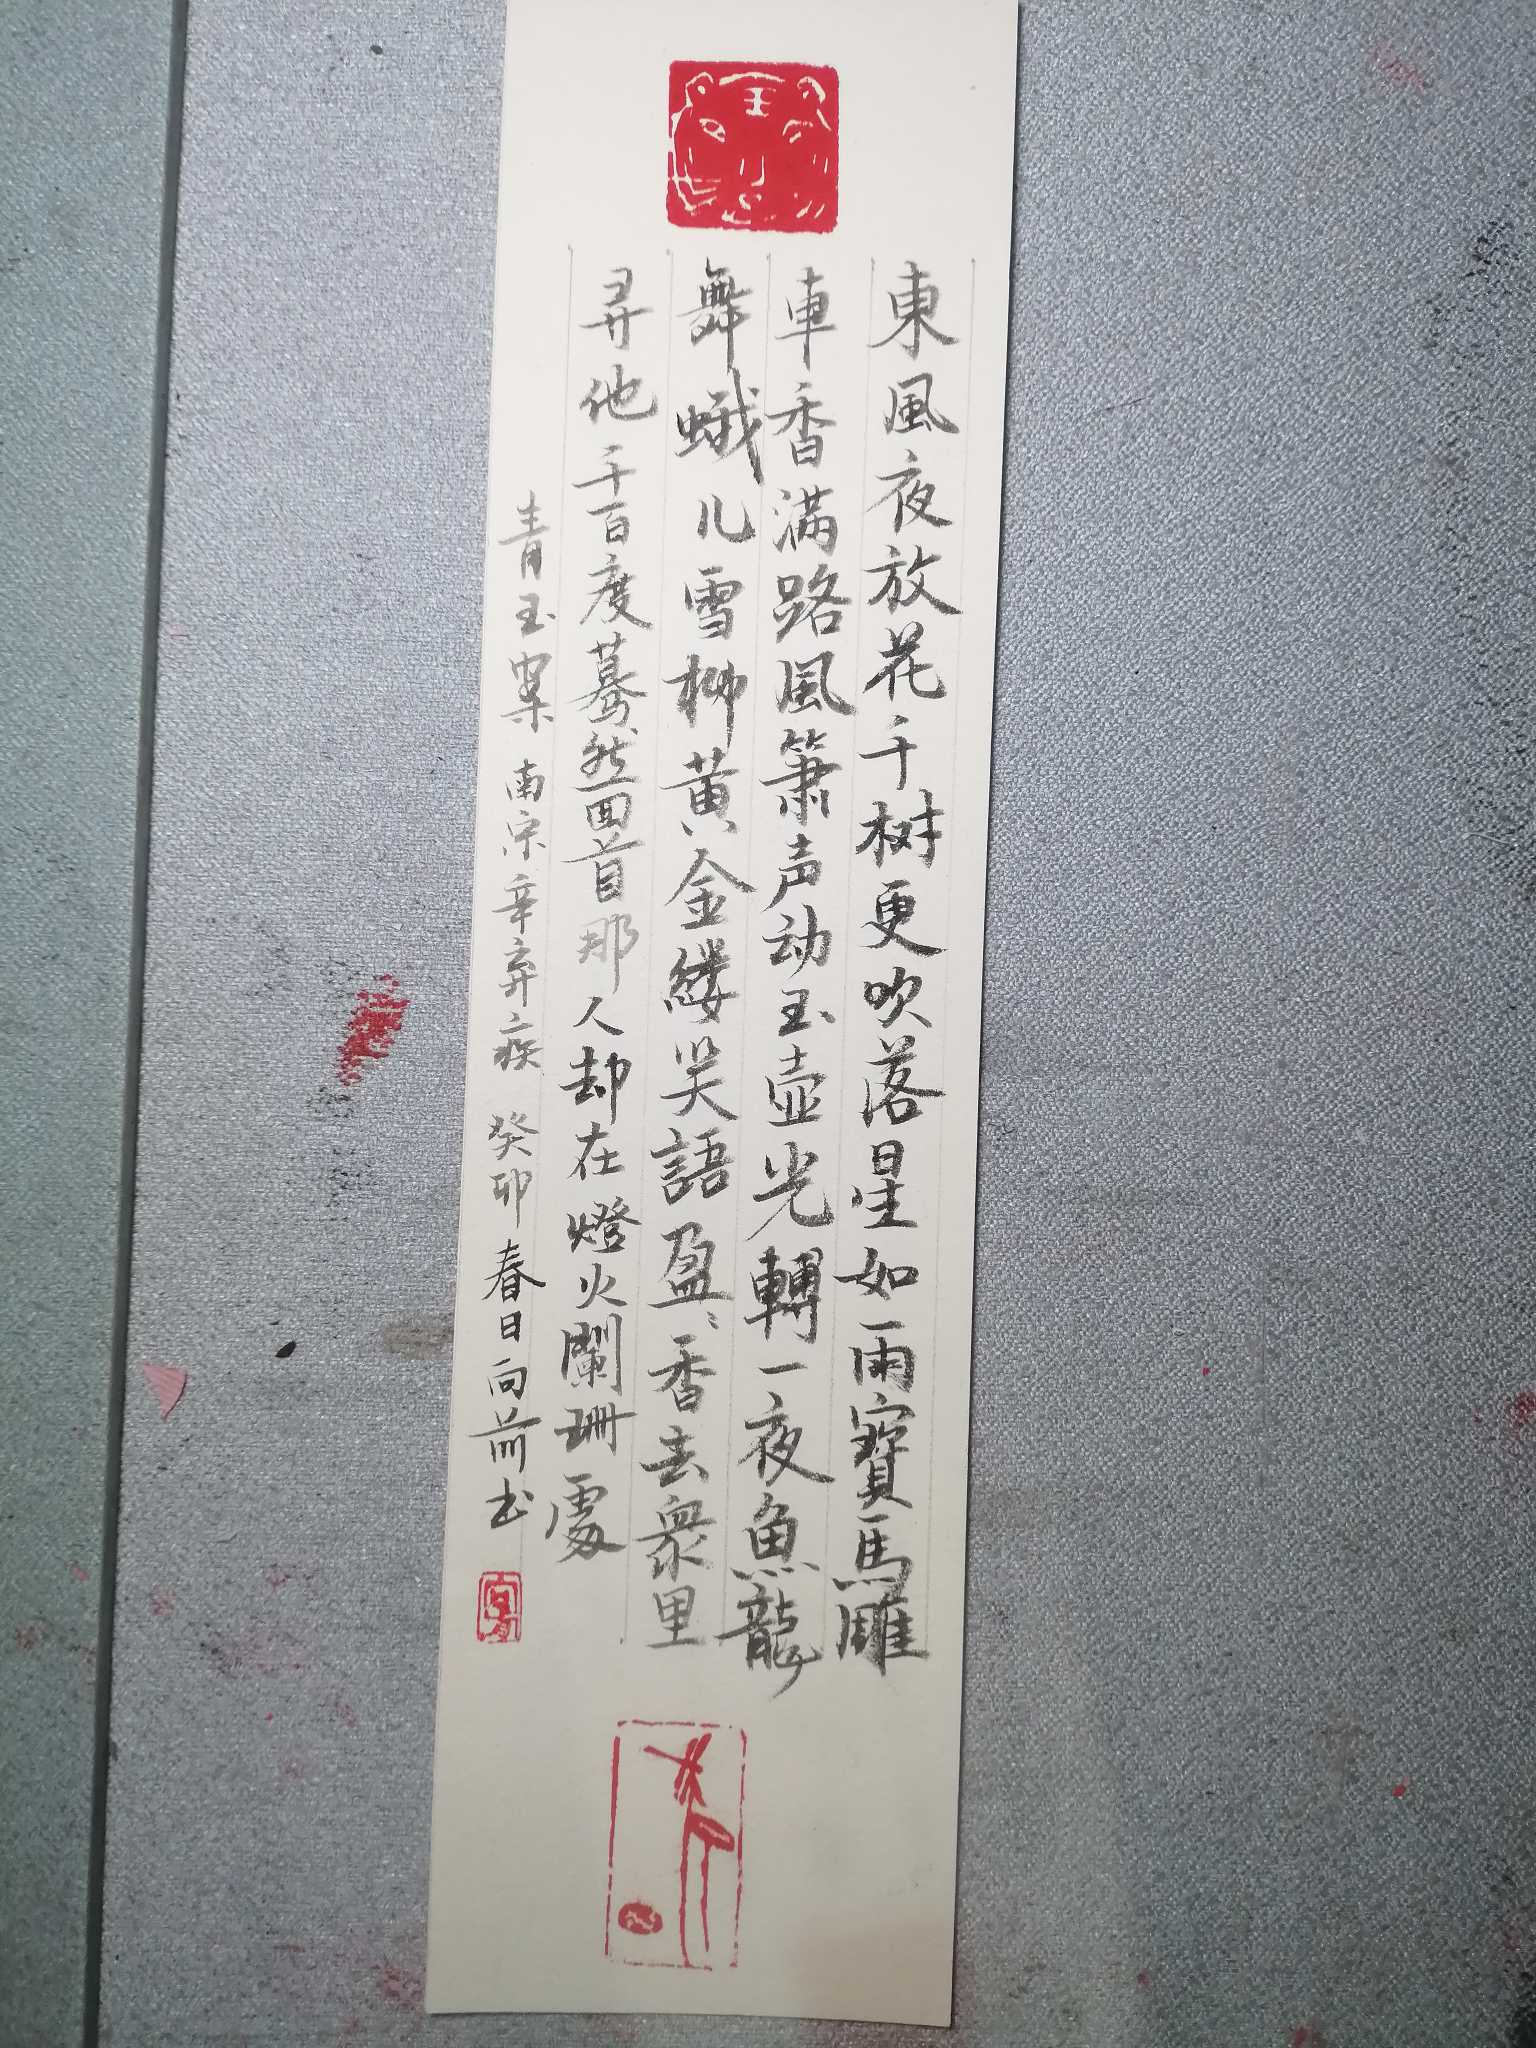 東風夜放花千树更吹落星如雨寶馬雕
車香满路風箫声动玉壶光轉一夜魚龍
舞蛾儿雪柳黄金縷笑語盈〻香去衆里
寻他千百度蓦然回首那人却在燈火闌珊處
青玉案 南宋辛弃疾 癸卯春日向前书
王